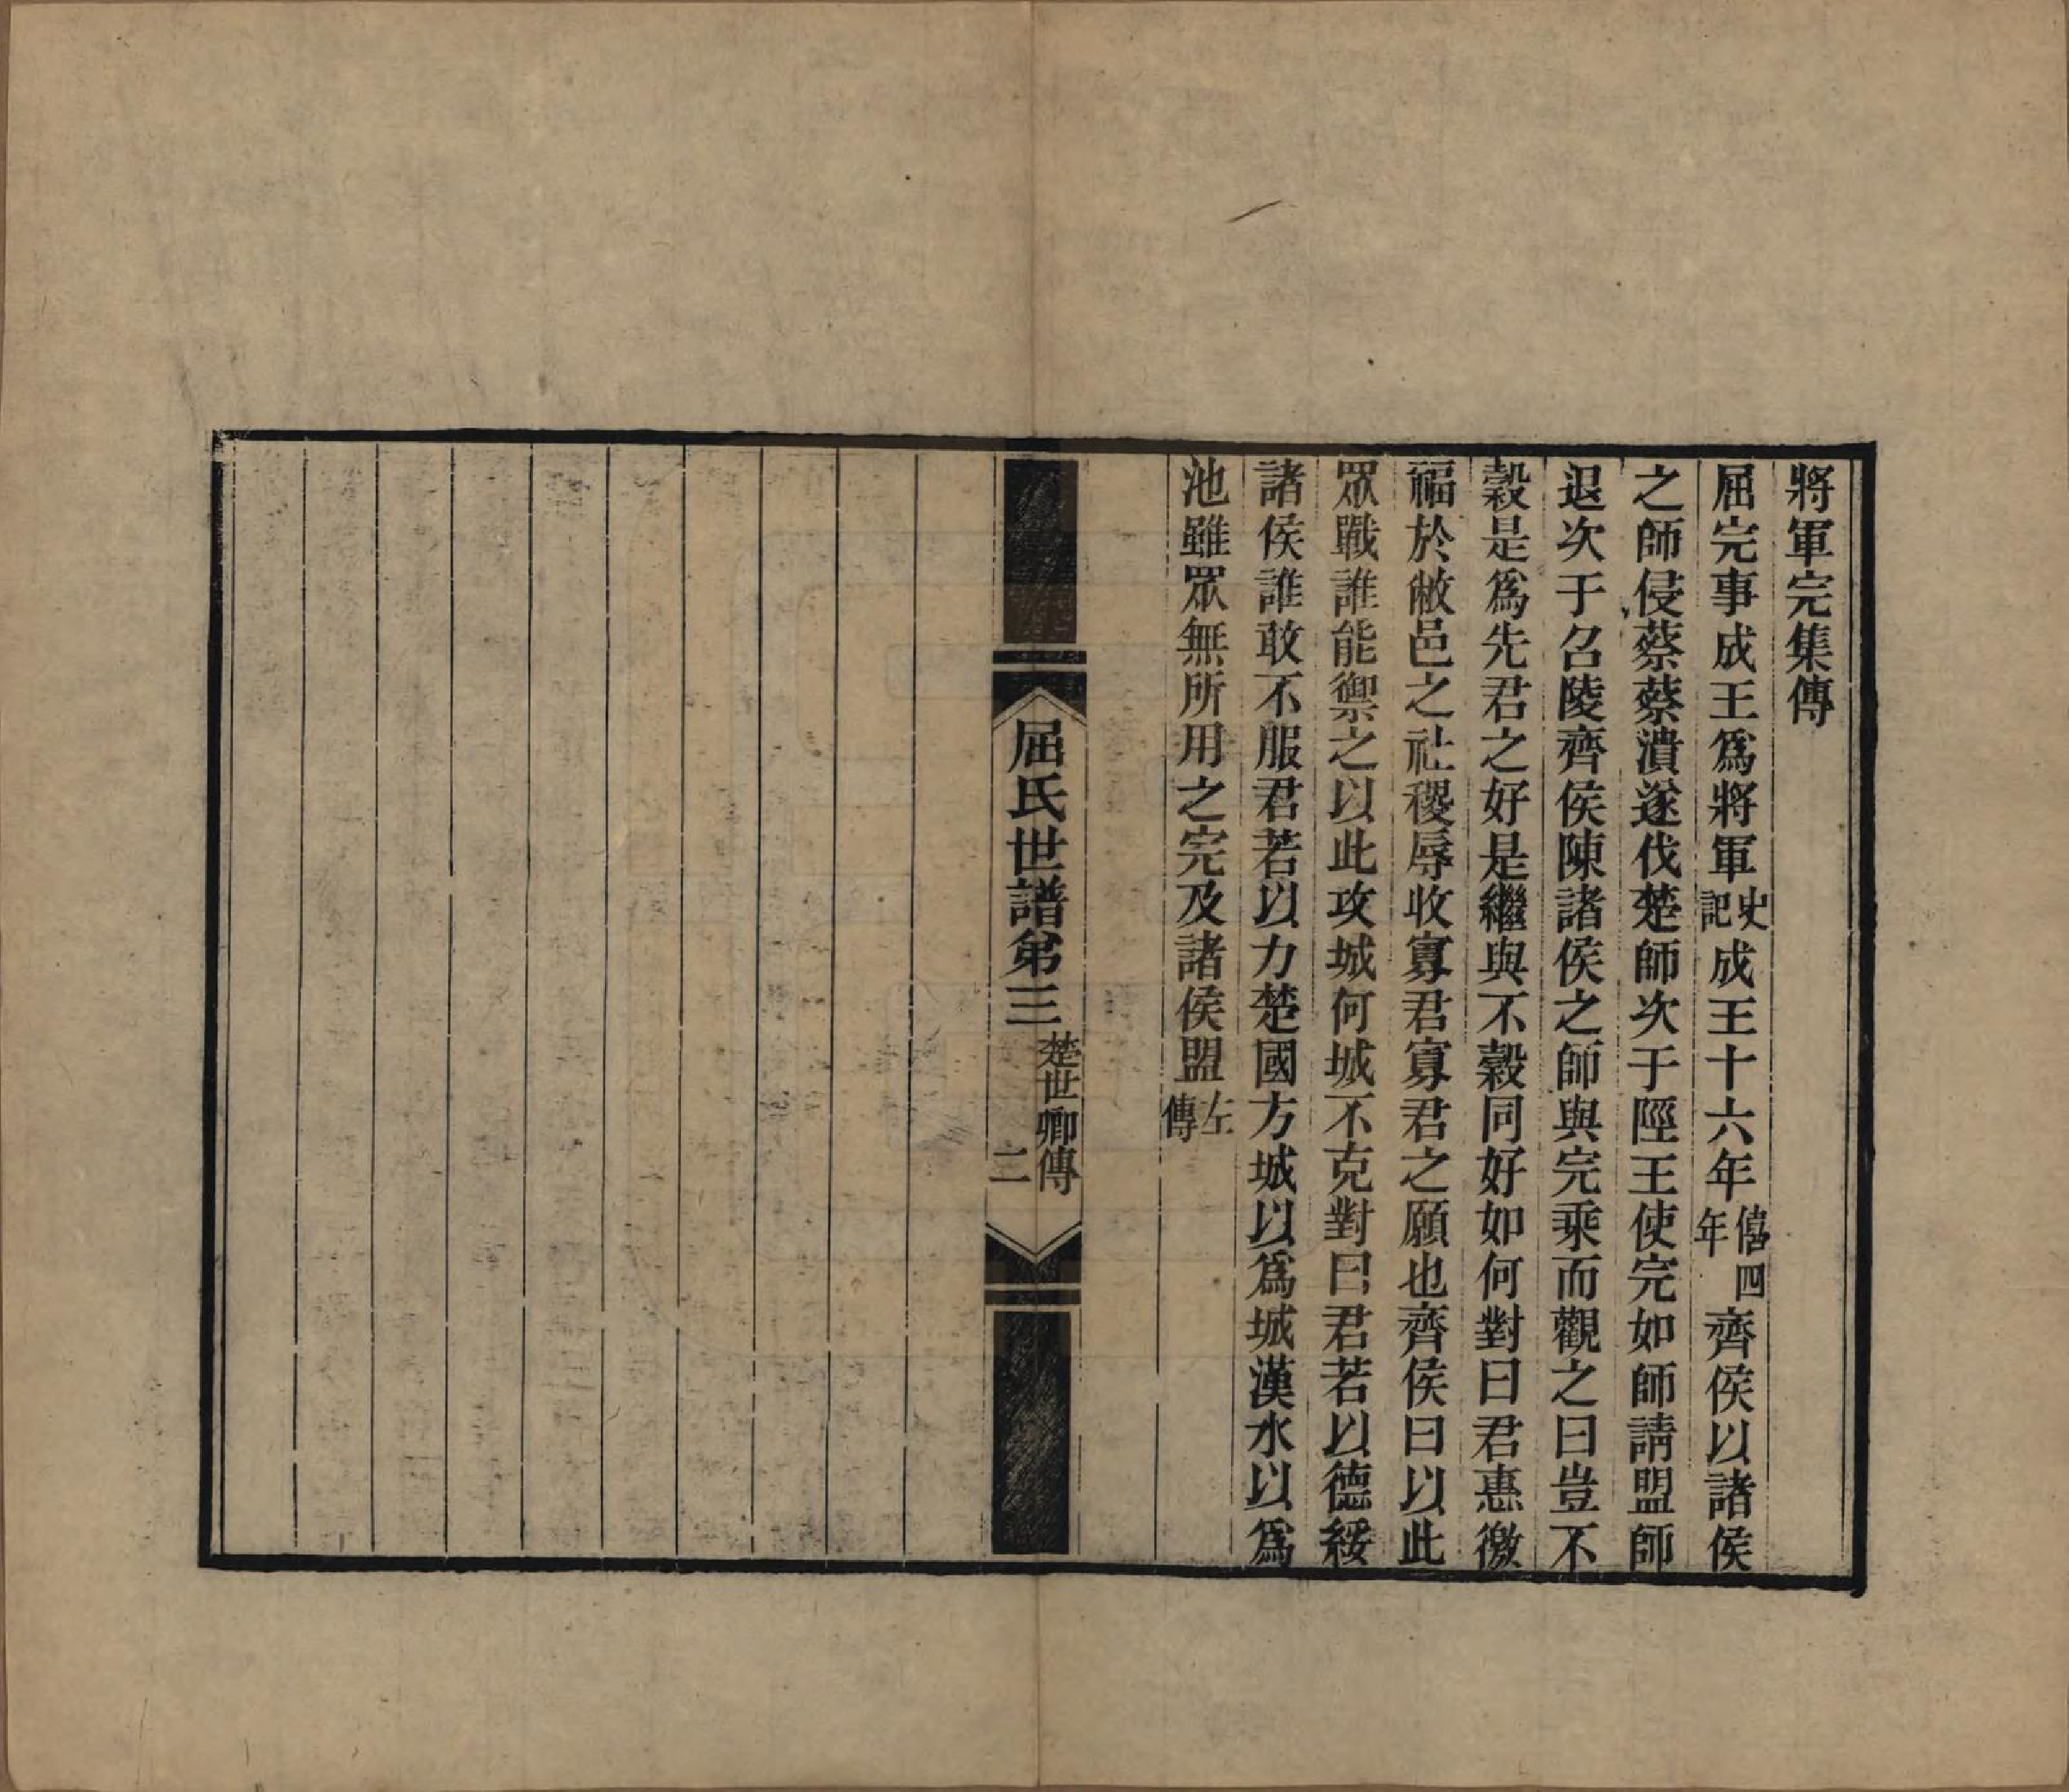 將軍完集傳
屈完事成王爲將軍史記成王十六年僖四年齊侯以諸侯
之師侵蔡蔡潰遂伐楚師次于陘王使完如師請盟師
退次于召陵齊侯陳諸侯之師與完乘而觀之曰豈不
穀是爲先君之好是繼與不穀同好如何對曰君惠徼
福於敝邑之社稷辱收寡君寡君之願也齊侯曰以此
眾戰誰能禦之以此攻城何城不克對曰君若以德綏
諸侯誰敢不服君若以力楚國方城以爲城漢水以爲
池雖眾無所用之完及諸侯盟左傳
屈氏世譜弟三 楚世卿傳 二